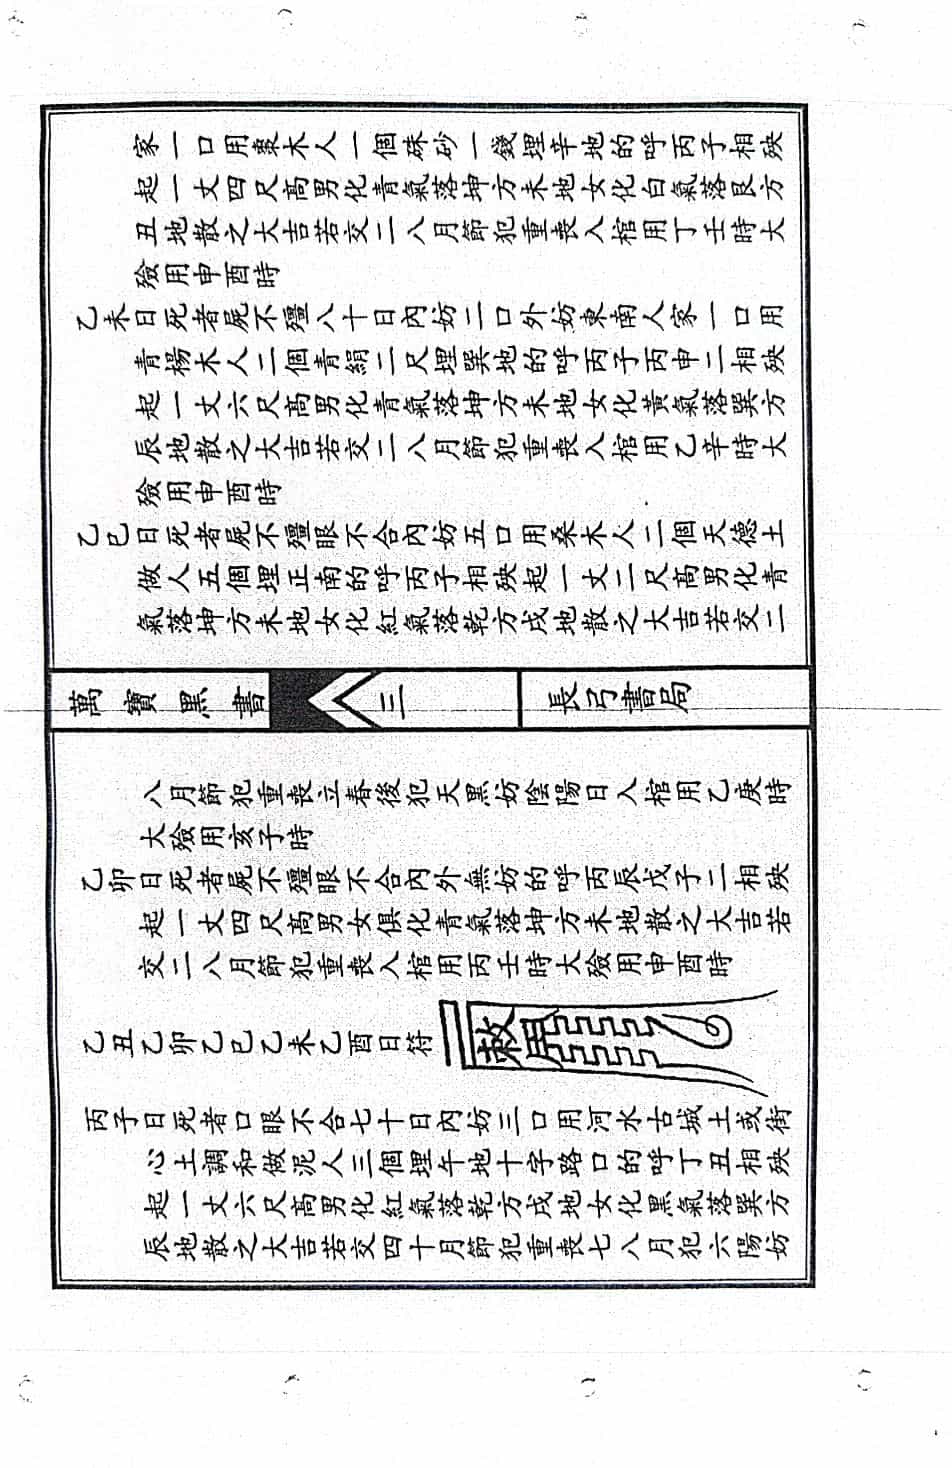 家一口用棗木人一個硃砂一錢埋辛地的呼丙子相殃
起一丈四尺高男化青氣落坤方未地女化白氣落艮方
丑地散之大吉若交二八月節犯重喪入棺用丁壬時大
殮用申酉時
乙未日死者屍不殭八十日內妨二口外妨東南人家一口用
青楊木人二個青絹二尺埋巽地的呼丙子丙申二相殃
起一丈六尺高男化青氣落坤方未地女化黃氣落巽方
辰地散之大吉若交二八月節犯重喪入棺用乙辛時大
殮用申酉時
乙巳日死者屍不殭眼不合內妨五口用桑木人二個天德土
做人五個埋正南的呼丙子相殃起一丈二尺高男化青
氣落坤方未地女化紅氣落乾方戌地散之大吉若交二
萬寶黑書
三
長弓書局
八月節犯重喪立春後犯天黑妨陰陽日入棺用乙庚時
大殮用亥子時
乙卯日死者屍不殭眼不合內外無妨的呼丙辰戊子二相殃
起一丈四尺高男女俱化青氣落坤方未地散之大吉若
交二八月節犯重喪入棺用丙壬時大殮用申酉時
乙丑乙卯乙巳乙未乙酉日符
敕
丙子日死者口眼不合七十日內妨三口用河水古城土或街
心土調和做泥人三個埋午地十字路口的呼丁丑相殃
起一丈六尺高男化紅氣落乾方戌地女化黑氣落巽方
辰地散之大吉若交四十月節犯重喪七八月犯六陽妨